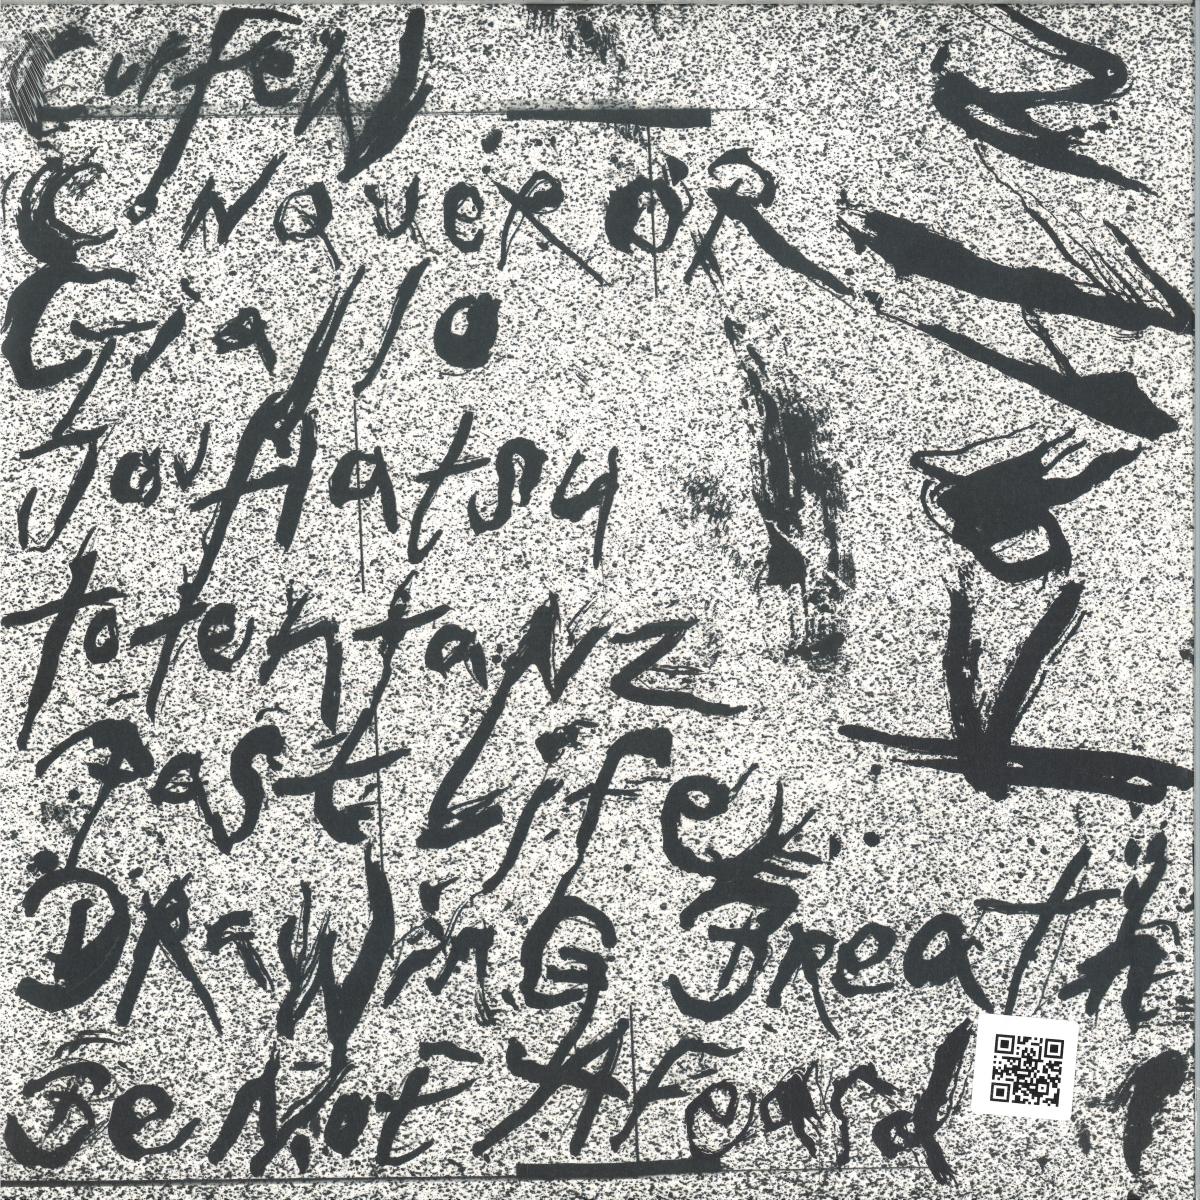 Curfew
ConquerOR
Giallo
JouHatsu
totentaNz
Past Life
DRawinG Breath
Be Not Afeard